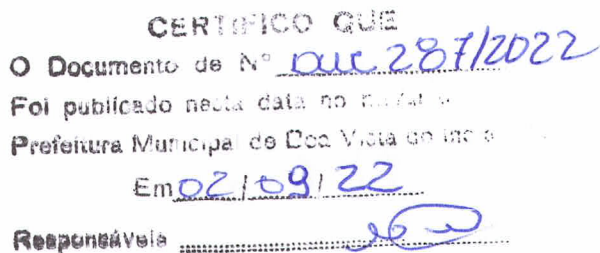 CERTIFICO QUE
O Documento de Nº 287/2022
Foi publicado nesta data no
Prefeitura Municipal de Boa Vista do
Em 02/09/22
Responsáveis